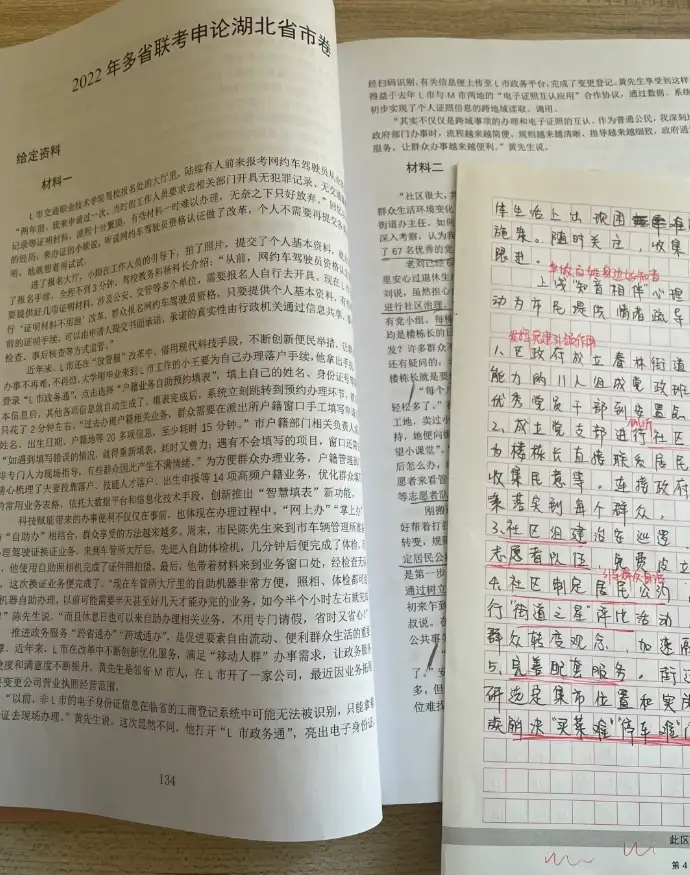 2022年多省联考申论湖北省市卷
给定资料
材料一
L市交通职业技术学院驾校报名处的大厅里，陆续有人前来报考网约车驾驶员从业
“两年前，我来申请过一次，当时的工作人员要求去相关部门开具无犯罪记录、无交通
记录等证明材料，流程十分繁琐，有些材料一时难以办理，无奈之下只好放弃。”
的经历，来办证的小陈说，听说网约车驾驶员资格认证做了改革，个人不需要再提交
明，她就想着再试试。
进了报名大厅，小陈在工作人员的引导下，拍了照片，提交了个人基本资料，就
了报名手续，全程不到3分钟。驾校教务科杨科长介绍：“从前，网约车驾驶员资格认
要提供好几项证明材料，涉及公安、交管等多个单位，需要报名人自行去开具。现在L市
行‘证明材料不用跑’改革，群众报名网约车驾驶员资格，只要提供个人基本资料，有
前的证明手续，可以由申请人提交书面承诺，承诺的真实性由行政机关通过信息共享、
检查、事后核查等方式监管。”
近年来，L市还在“放管服”改革中，借用现代科技手段，不断创新便民举措，让
办事不再难，不再烦。大学刚毕业来到L市工作的小王要为自己办理落户手续，他拿出手
“L市政务通”，点击选择“户籍业务自助预约填表”，填上自己的姓名、身份证号
本信息后，其他各项信息就自动生成了。填表完成后，系统立刻跳转到预约办理环节，
只花了2分钟左右。“过去办理户籍相关业务，群众需要在派出所户籍窗口手工填写申
姓名、出生日期、户籍地等20多项信息，至少耗时15分钟。”市户籍部门相关负责人
“如遇到填写错误的情况，就得重新填表，耗时又费力；遇有不会填写的项目，窗口还
专门人力现场指导，有些群众因此产生不满情绪。”为方便群众办理业务，户籍管理
精心梳理了夫妻投靠落户、技能人才落户、出生申报等14项高频户籍业务，优化群众
的常用业务表格，依托大数据平台和信息化技术手段，创新推出“智慧填表”新功能。
科技赋能带来的办事便利不仅仅在事前，也体现在办理过程中。“网上办”“掌上办”
“自助办”相结合，群众享受的方法越来越多。周末，市民陈先生来到市车辆管理所
理驾驶证换证业务。来到车管所大厅后，先进入自助体检机，几分钟后便完成了体检。
，他使用自助照相机完成了证件照拍摄。最后，他带着材料来到业务窗口处，经检查无
，这次换证业务便完成了。“现在车管所大厅里的自助机器非常方便，照相、体检都
机器自助办理，以前可能需要半天甚至好几天才能办完的业务，如今半个小时左右就
”陈先生说，“而且休息日也可以来自助办理相关业务，不用专门请假，省时又省心！”
推进政务服务“跨省通办”“跨域通办”，是促进要素自由流动、便利群众生活的重
。近年来，L市在改革中不断创新优化服务，满足“移动人群”办事需求，让政务服
速度和满意度不断提升。黄先生是邻省M市人，在L市开了一家公司，最近因业务拓
要变更公司营业执照经营范围。
“以前，非L市的电子身份证信息在临省的工商登记系统中可能无法被识别，只能拿着
证去现场办理。”黄先生说，这次显然不同，他打开“L市政务通”，亮出电子身份证
134
经扫码识别，有关信息便上传至L市政务平台，完成了变更登记。黄先生享受到这样
得益于去年L市与M市两地的“电子证照互认应用”合作协议，通过数据、系统
初步实现了个人证照信息的跨地域读取、调用。
“其实不仅仅是跨域事项的办理和电子证照的互认。作为普通公民，我深刻
政府部门办事时，流程越来越简便，规则越来越清晰，指导越来越细致，政府通
服务，让群众办事越来越便利。”黄先生说。
材料二
“社区很大，其
群众生活环境变化
街道办主任，如何
深入考察，认为我
了67名优秀的党
老刘已经
里安心过退休生
刘说，虽然担心
进行社区治理。
有党小组，每栋
均是楼栋长的日
发？许多群众不
还有疑问的，
楼栋长就是要
“每个
轻松多了。”
工地，卖过小
持，她便向街
望小课堂”。
后怎么办，
愿者来看管
等志愿者活
别搬
好帮着打
转变，规
定居民公
是第一步
通过树立
初来乍到
叔说。在
公共事
了。
多，但
位难找
体生活上出现困难
施策。随时关注，收集
跟进。
争做百姓身边知音者
上线“知音相伴”心理
动，为市民提供情绪疏导
发挥党建引领作用
1.区政府成立春林街道
能力的11人组成党政班
优秀党员干部到安置点
2.成立党支部进行社区
为楼栋长直接联系居民
收集民意等。连接政府
策落实到每个群众。
3.社区组建治安巡逻、
志愿者队伍，免费成立
引导群众自治
4.社区制定居民公约，
行“街道之星”评比活动
群众转变观念，加速融
5.完善配套服务。街道
研选定集市位置和实
决解决“买菜难”“停车难”
此区
第4